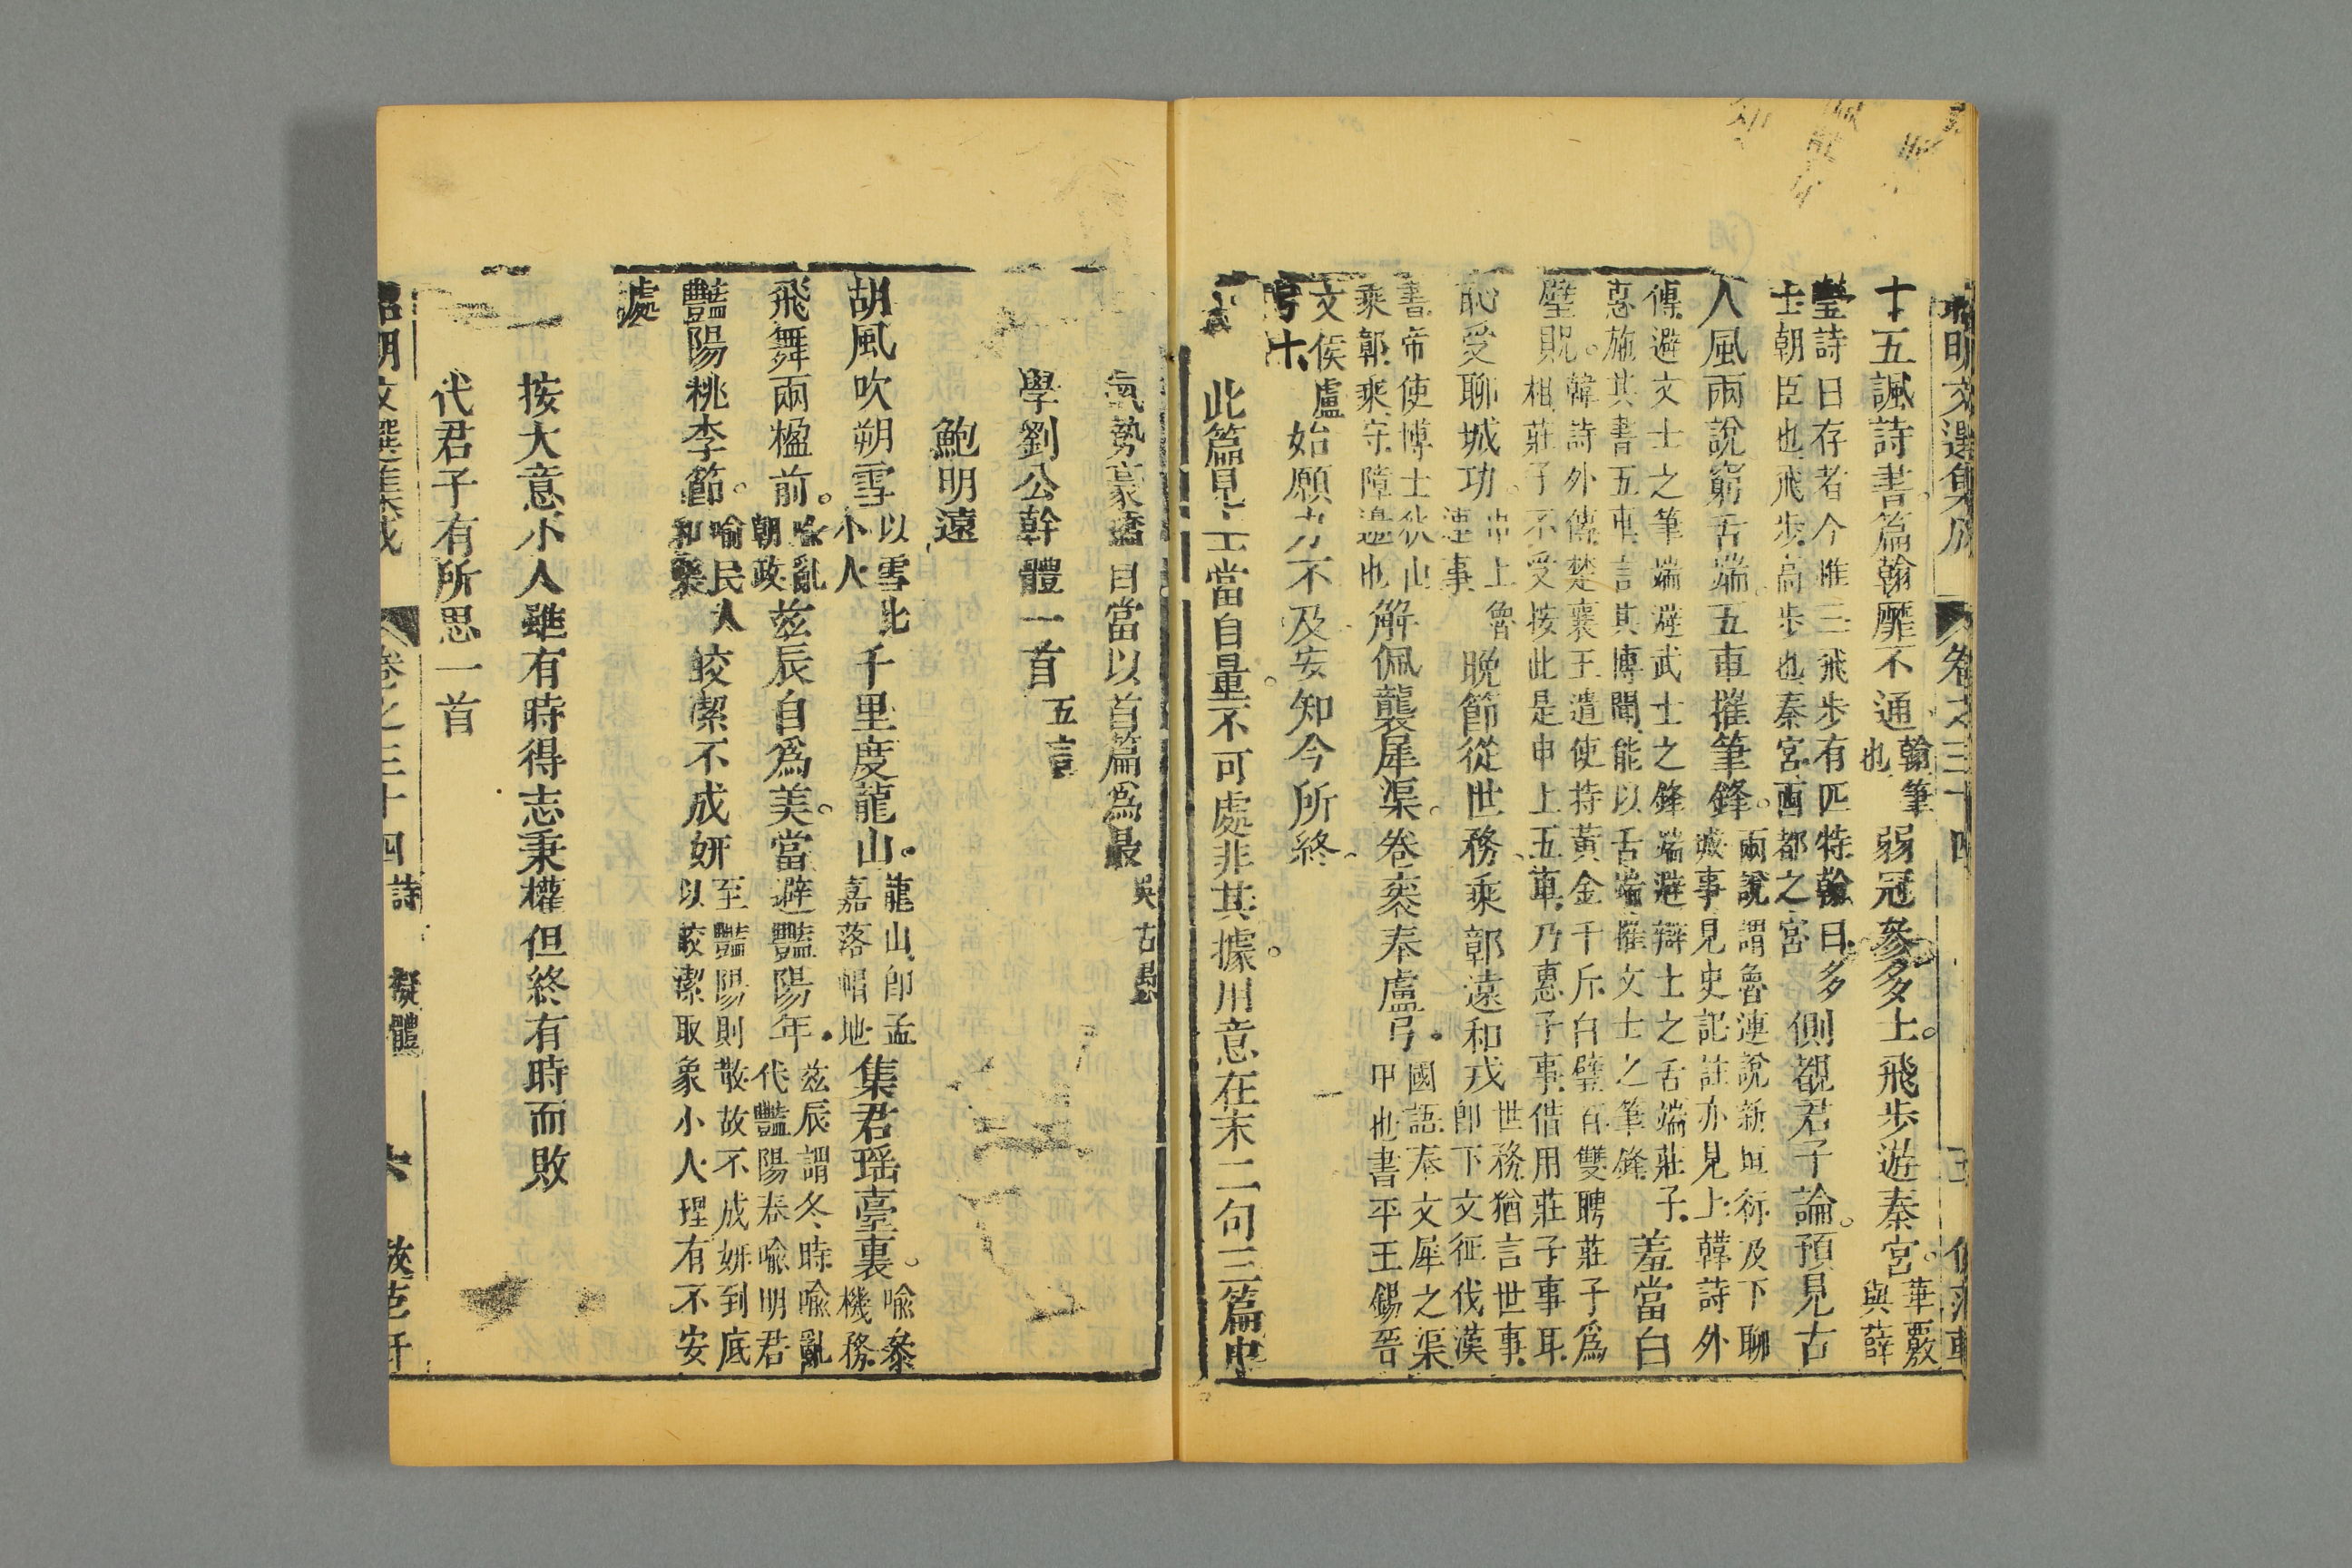 昭明文選集成 卷之三十四
十五諷詩書篇翰靡不通翰筆也弱冠參多士飛步遊秦宮華覈與薛
瑩詩曰存者今惟三飛步有匹特翰曰多士朝臣也飛步高步也秦宮西都之宮側覩君子論預見古
人風兩說窮舌端五車摧筆鋒兩說謂魯連說新垣衍及下聊城事見史記註亦見上韓詩外
傳避文士之筆端避武士之鋒端避辯士之舌端莊子惠施其書五車言其博聞能以舌端摧文士之筆鋒羞當白
璧貺韓詩外傳楚襄王遣使持黃金千斤白璧百雙聘莊子爲相莊子不受按此是申上五車乃惠子事借用莊子事耳
恥受聊城功申上魯連事晚節從世務乘鄣遠和戎世務猶言世事即下文征伐漢
書帝使博士狄山乘鄣乘守障邊也解佩襲犀渠卷袠奉盧弓國語奉文犀之渠甲也書平王錫晉
文侯盧弓十始願力不及安知今所終
此篇見士當自量不可處非其據用意在末二句三篇中
氣勢豪邁自當以首篇爲最吳古愚
學劉公幹體一首五言
鮑明遠
胡風吹朔雪以雪比小人千里度龍山龍山即孟嘉落帽地集君瑶臺裏喻參機務
飛舞兩楹前喻亂朝政茲辰自爲美當避豔陽年茲辰謂冬時喻亂代豔陽春喻明君
豔陽桃李節喻民人和樂皎潔不成妍至豔陽則散故不成妍到底以皎潔取象小人理有不安
處
按大意小人雖有時得志秉權但終有時而敗
代君子有所思一首
昭明文選集成 卷之三十四 詩 擬體 六